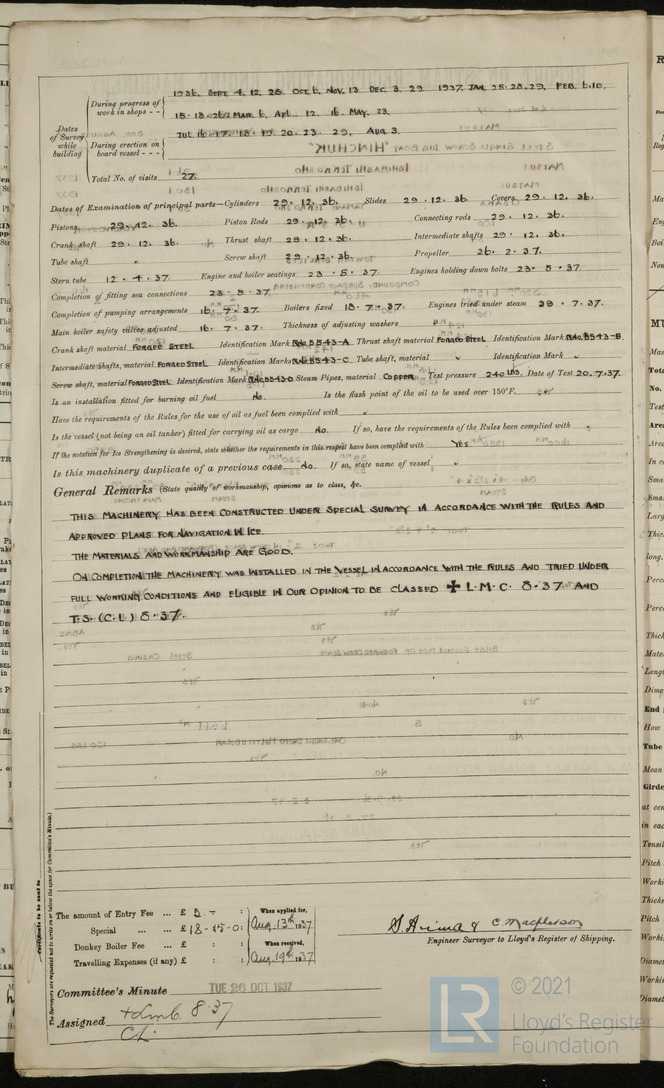 1936. SEPT. 4. 12. 28. OCT. 6. NOV. 13 DEC. 3. 29. 1937. JAN. 25. 28. 29. FEB. 6. 10.
During progress of work in shops
MAR. 6. APL. 12. 16. MAY. 23.
Dates of Survey while building
During erection on board vessel
JUL 16. 17. 18. 19. 20. 23. 29. AUG 3.
Total No. of visits 27.
Dates of Examination of principal parts—Cylinders 29. 12. 36. Slides 29. 12. 36. Covers 29. 12. 36.
Pistons 29. 12. 36. Piston Rods 29. 12. 36. Connecting rods 29. 12. 36.
Crank shaft 29. 12. 36. Thrust shaft 29. 12. 36. Intermediate shafts 29. 12. 36.
Tube shaft Screw shaft 29. 12. 36. Propeller 26. 2. 37.
Stern tube 12. 4. 37. Engine and boiler seatings 23. 5. 37. Engines holding down bolts 23. 5 37
Completion of fitting sea connections 23. 5. 37
Completion of pumping arrangements 16. 7. 37. Boilers fixed 18. 7. 37. Engines tried under steam 7. 37.
Main boiler safety valves adjusted 16. 7. 37. Thickness of adjusting washers
Crank shaft material FORGED STEEL Identification Mark 5543-A Thrust shaft material FORGED STEEL Identification Mark 5543-B
Intermediate shafts, material FORGED STEEL Identification Marks 5543-C Tube shaft, material Identification Mark
Screw shaft, material FORGED STEEL Identification Mark 5543-D Steam Pipes, material COPPER Test pressure 240 LBS. Date of Test 20. 7. 37.
Is an installation fitted for burning oil fuel No. Is the flash point of the oil to be used over 150°F.
Have the requirements of the Rules for the use of oil as fuel been complied with
Is the vessel (not being an oil tanker) fitted for carrying oil as cargo No. If so, have the requirements of the Rules been complied with
If the notation for Ice Strengthening is desired, state whether the requirements in this respect have been complied with YES.
Is this machinery duplicate of a previous case No. If so, state name of vessel
General Remarks (State quality of workmanship, opinions as to class, &c.
THIS MACHINERY HAS BEEN CONSTRUCTED UNDER SPECIAL SURVEY IN ACCORDANCE WITH THE RULES AND
APPROVED PLANS FOR NAVIGATION IN ICE.
THE MATERIALS AND WORKMANSHIP ARE GOOD.
ON COMPLETION THE MACHINERY WAS INSTALLED IN THE VESSEL IN ACCORDANCE WITH THE RULES AND TRIED UNDER
FULL WORKING CONDITIONS AND ELIGIBLE IN OUR OPINION TO BE CLASSED ✠ L.M.C. 8.37 AND
T.S. (C.L.) 8.37.
The amount of Entry Fee ... £ 2 : When applied for,
Special ... ... £ 18-15-0 : Aug. 13th 1937
Donkey Boiler Fee ... £ : : When received,
Travelling Expenses (if any) £ : : Aug. 19th 1937
S. Arima & C. Macpherson
Engineer Surveyor to Lloyd's Register of Shipping.
Committee's Minute TUE 26 OCT 1937
Assigned + LMC 8.37
CL.
Certificate to be sent to
(The Surveyors are requested not to write on or below the space for Committee's Minute.)
LR
© 2021
Lloyd's Register
Foundation